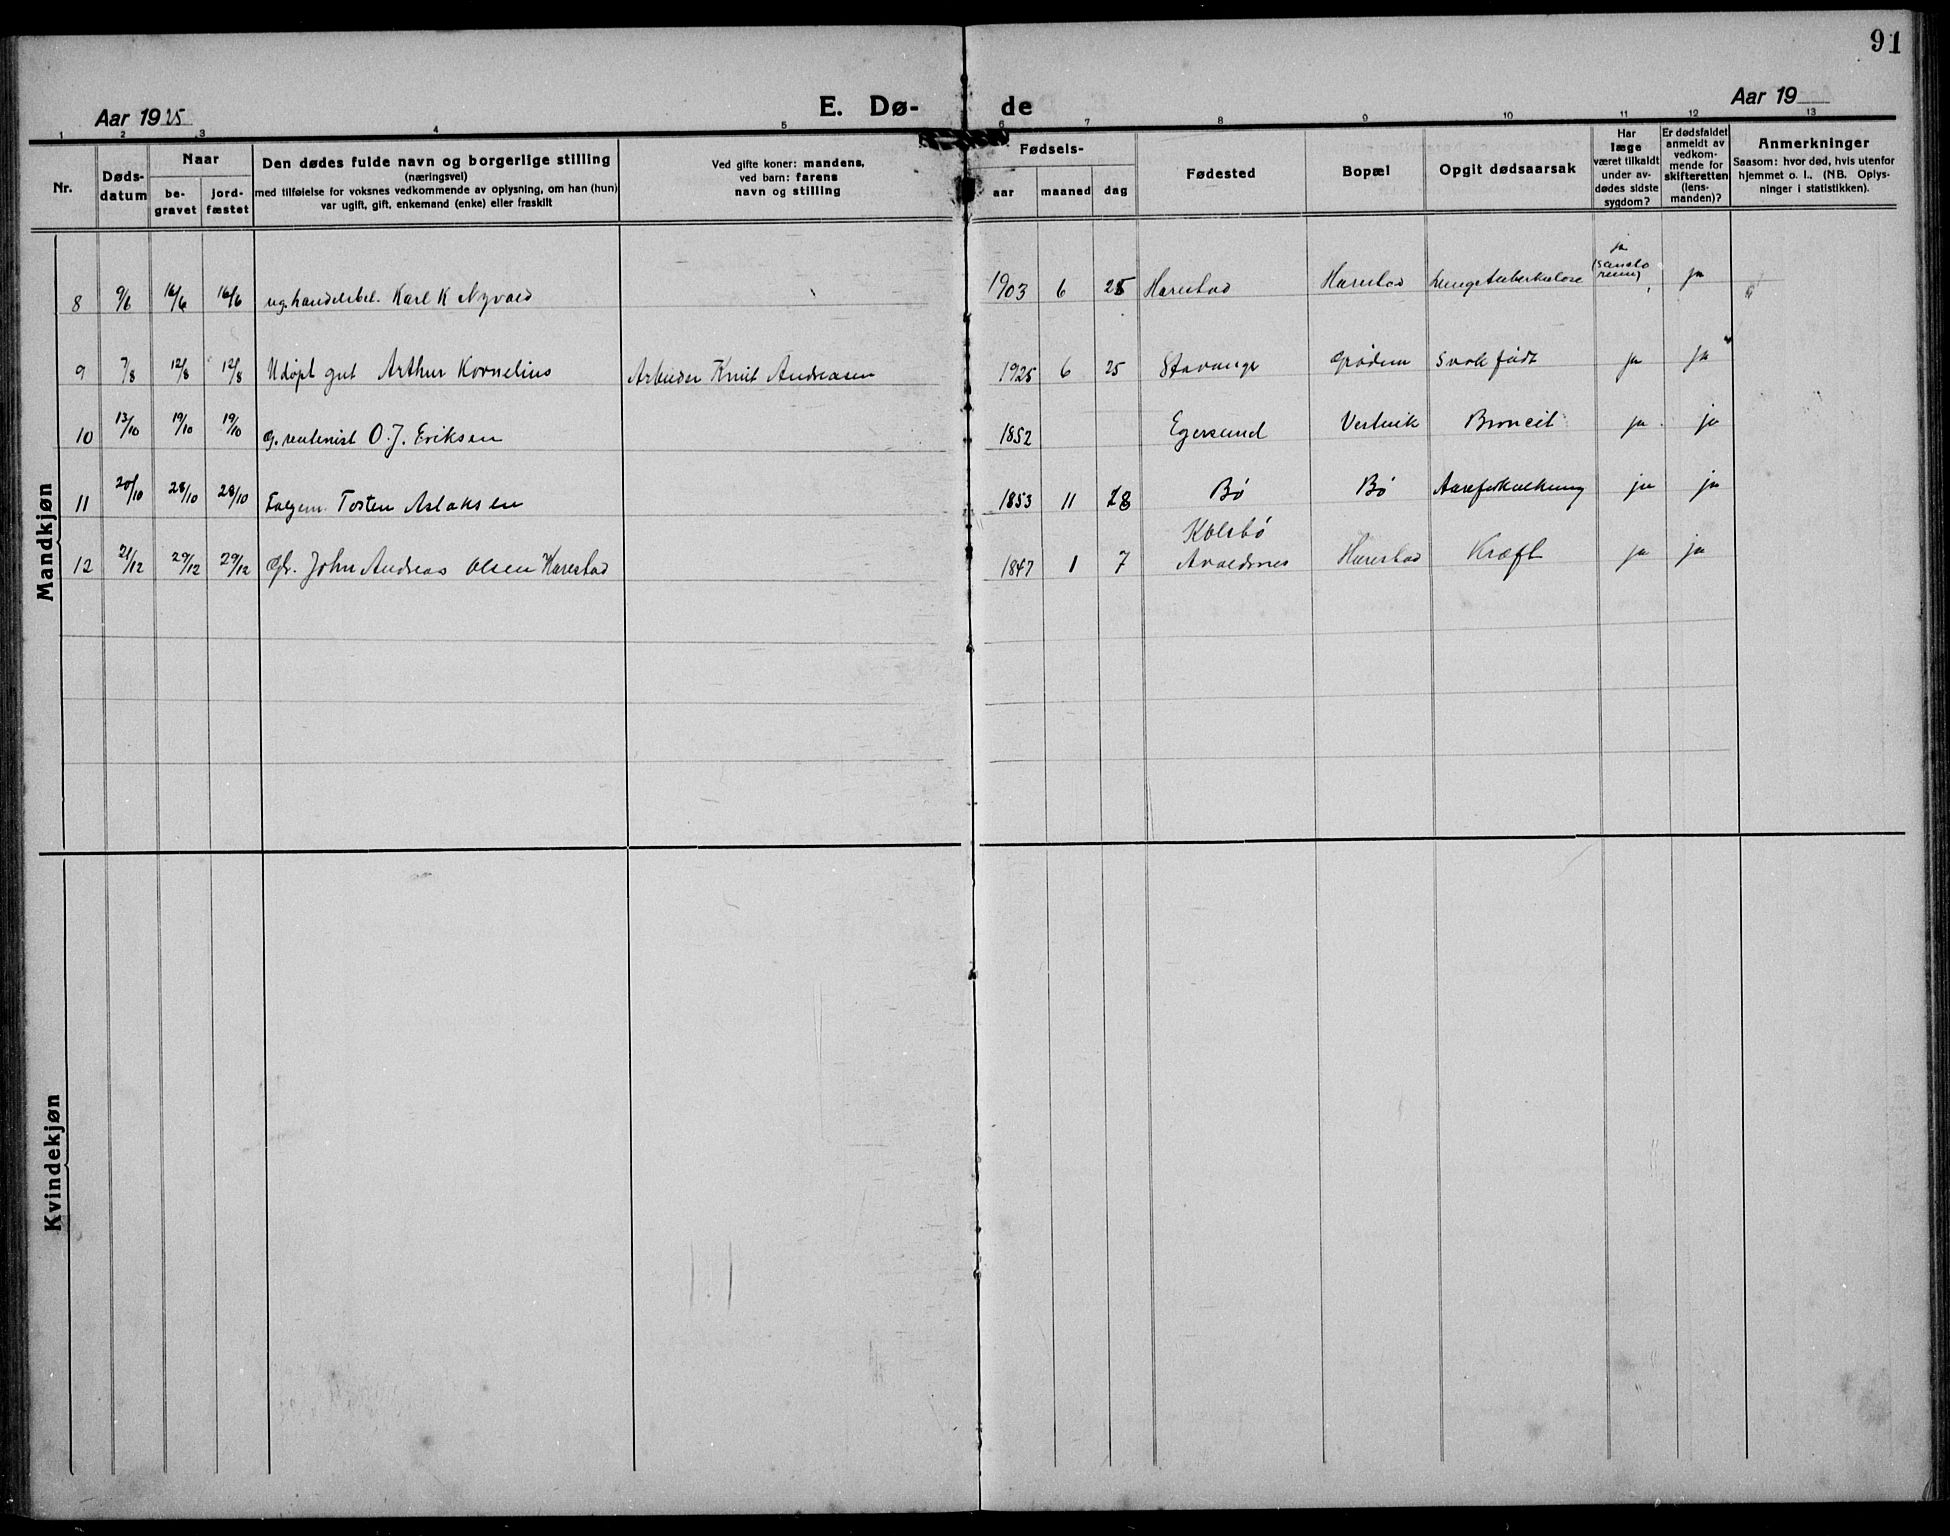 91
Aar 1925
E. Dø- de
Aar 19
1 2 3 4 5 6 7 8 9 10 11 12 13
Nr.
Døds-
datum
Naar
be-
gravet
jord-
fæstet
Den dødes fulde navn og borgerlige stilling
(næringsvei)
med tilføielse for voksnes vedkommende av oplysning, om han (hun)
var ugift, gift, enkemand (enke) eller fraskilt
Ved gifte koner: mandens,
ved barn: farens
navn og stilling
Fødsels-
aar maaned dag
Fødested
Bopæl
Opgit dødsaarsak
Har
læge
været tilkaldt
under av-
dødes sidste
sygdom?
Er dødsfaldet
anmeldt av
vedkom-
mende for
skifteretten
(lens-
manden)?
Anmerkninger
Saasom: hvor død, hvis utenfor
hjemmet o. l.. (NB. Oplys-
ninger i statistikken).
Mandkjøn
8 9/6 16/6 16/6 ug. handelsbet. Karl K Nyvold 1903 6 25 Harestad Harestad Lungetuberkulose ja ja
9 7/8 12/8 12/8 Udøpt gut Arthur Kornelius Arbeider Knut Andreasen 1925 6 25 Stavanger Grødem Svak født ja ja
10 13/10 19/10 19/10 g. rentenist O. J. Eriksen 1852 Egersund Vestvik Broncit ja ja
11 20/10 28/10 28/10 Folgem. Tosten Aslaksen 1853 11 28 Bø Bø Aareforkalkning ja ja
12 21/12 29/12 29/12 John Andreas Olsen Harestad 1847 1 7 Kolsbø
Avaldsnes Harestad Kræft ja ja
Kvindekjøn